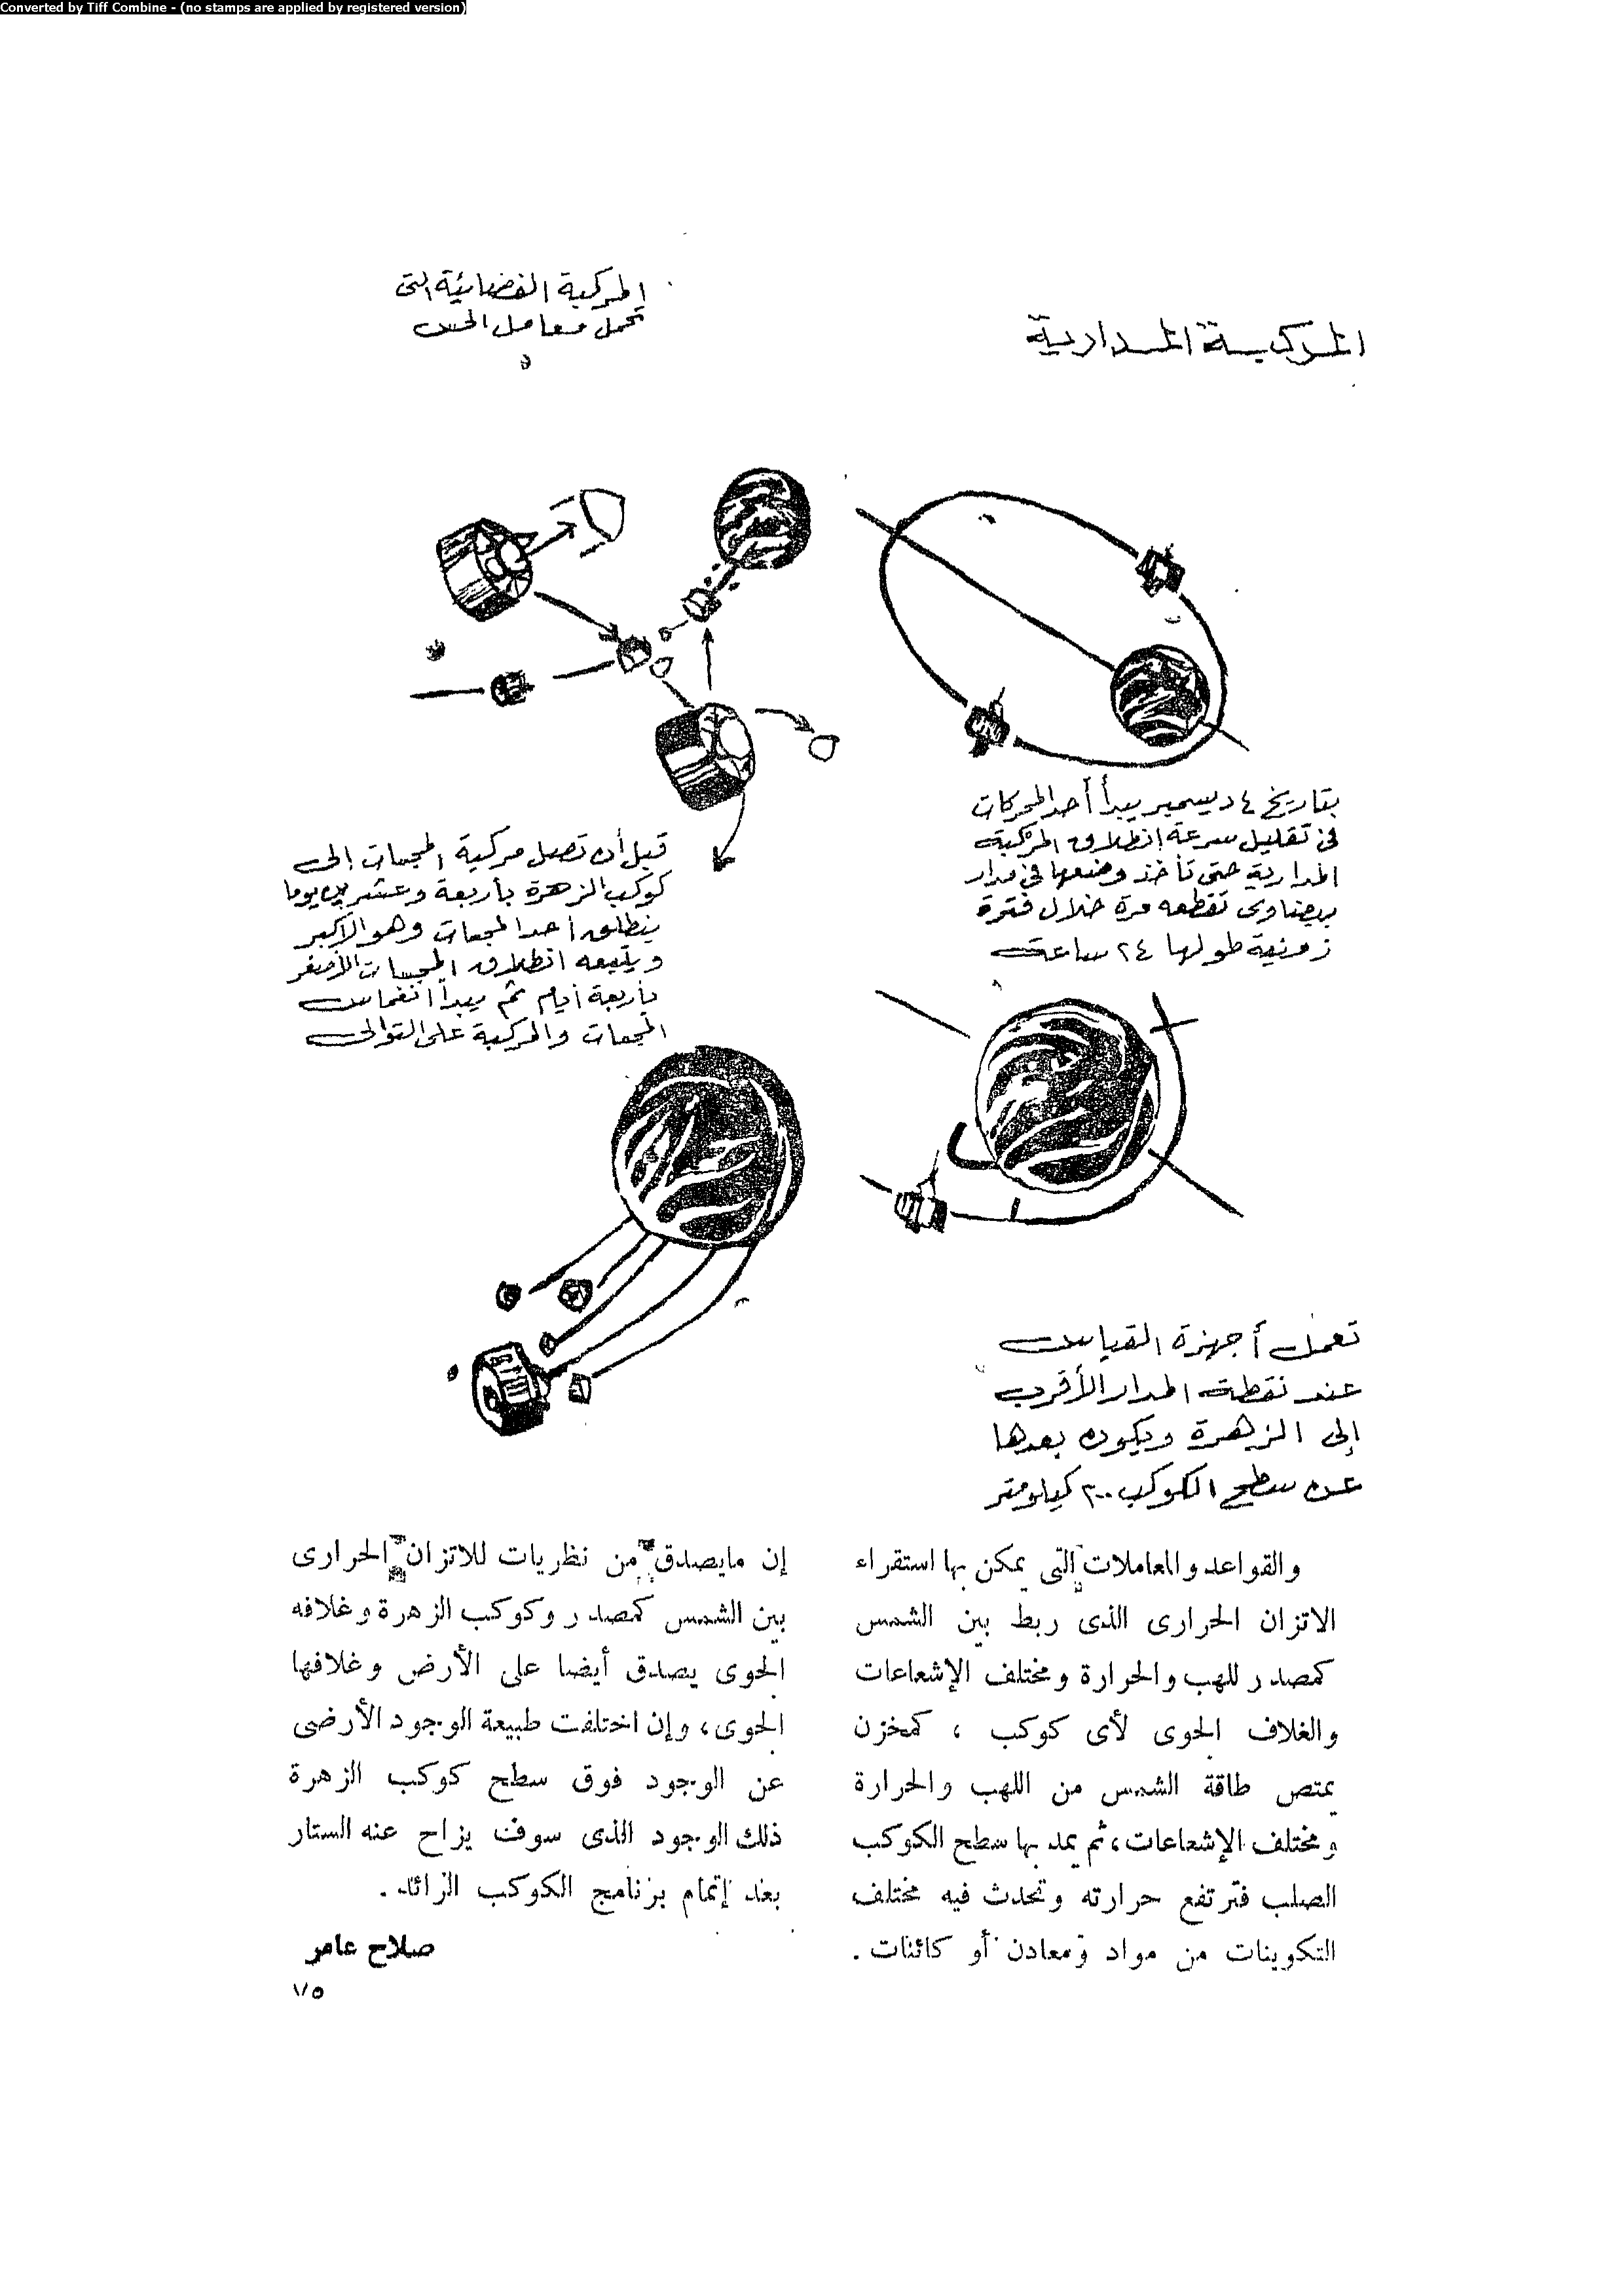 Converted by Tiff Combine - (no stamps are applied by registered version)
المركبة المدارية
المركبة الفضائية التى
تحمل معامل الجس
بتاريخ ٤ ديسمبر يبدأ أحد المحركات
فى تقليل سرعة انطلاق المركبة
المدارية حتى تأخذ وضعها فى مدار
بيضاوى تقطعه مرة خلال فترة
زمنية طولها ٢٤ ساعة
قبل أن تصل مركبة المجسات إلى
كوكب الزهرة بأربعة وعشرين يوما
ينطلق أحد المجسات وهو الأكبر
ويتبعه انطلاق المجسات الأصغر
بأربعة أيام ثم يبدأ انغماس
المجسات والمركبة على التوالى
تعمل أجهزة القياس
عند نقطة المدار الأقرب
إلى الزهرة ويكون بعدها
عن سطح الكوكب ٢٠٠ كيلومتر
والقواعد والمعاملات التى يمكن بها استقراء
الاتزان الحرارى الذى ربط بين الشمس
كمصدر للهب والحرارة ومختلف الإشعاعات
والغلاف الجوى لأى كوكب ، كمخزن
يمتص طاقة الشمس من اللهب والحرارة
ومختلف الإشعاعات، ثم يمد بها سطح الكوكب
الصلب فترتفع حرارته وتحدث فيه مختلف
التكوينات من مواد ومعادن أو كائنات .
إن مايصدق من نظريات للاتزان الحرارى
بين الشمس كمصدر وكوكب الزهرة وغلافه
الجوى يصدق أيضا على الأرض وغلافها
الجوى، وإن اختلفت طبيعة الوجود الأرضى
عن الوجود فوق سطح كوكب الزهرة
ذلك الوجود الذى سوف يزاح عنه الستار
بعد إتمام برنامج الكوكب الرائد .
صلاح عامر
١٧٥